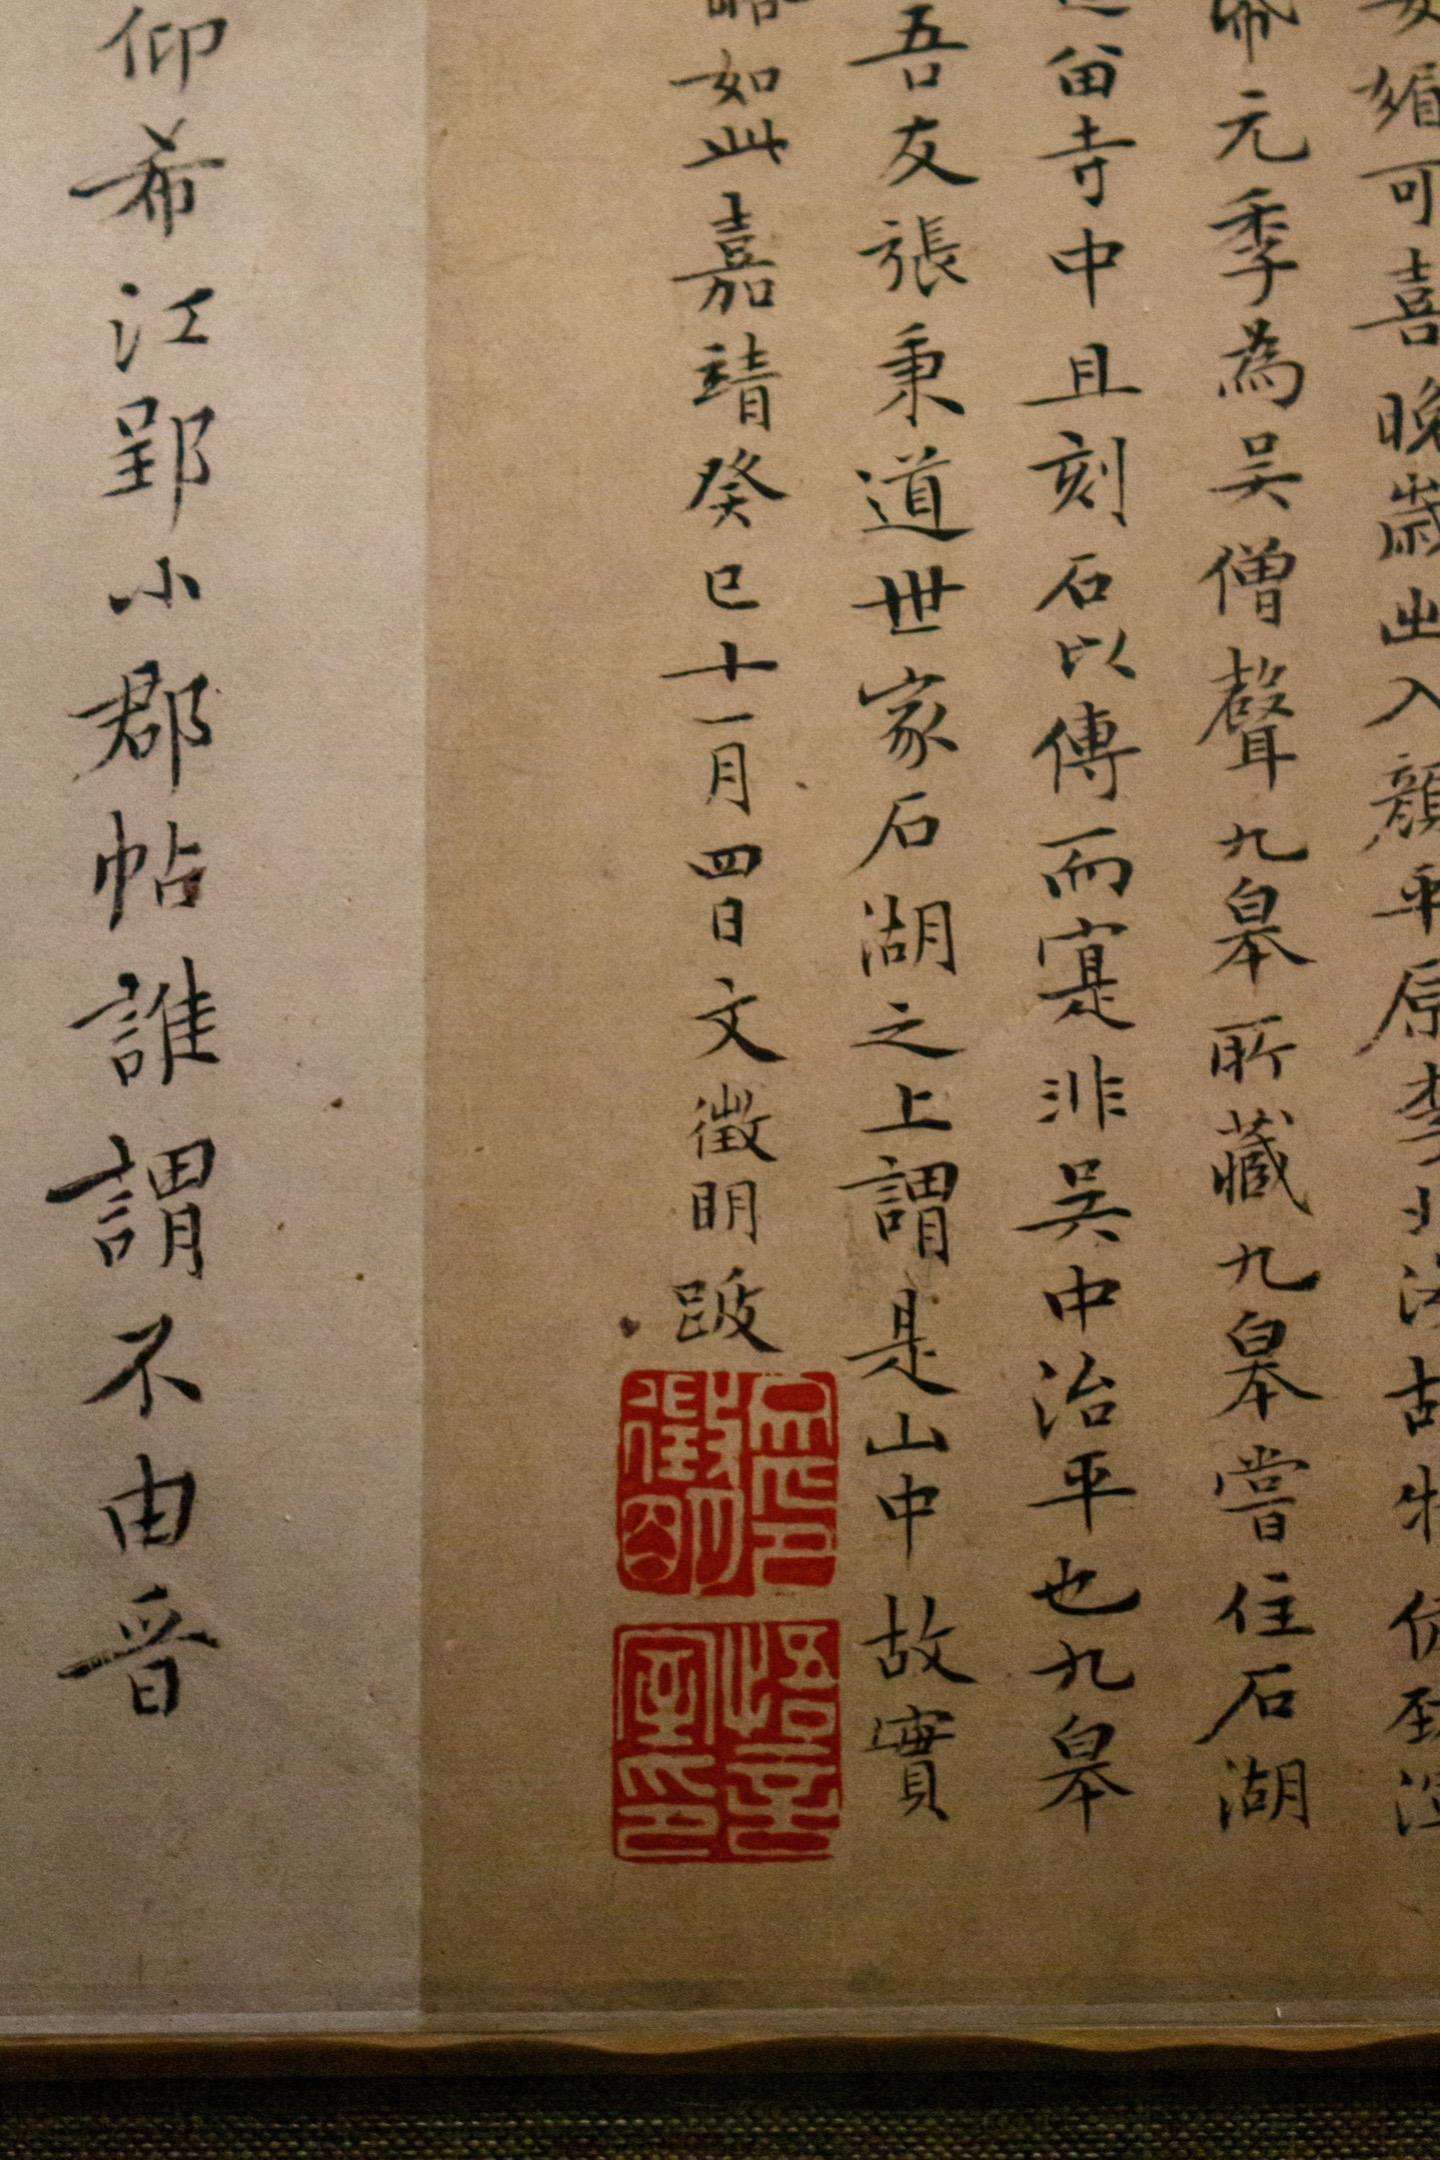 媚可喜晚歲出入顏平原李北海故
元季為吳僧聲九皋所藏九皋嘗住石湖
留寺中且刻石以傳而寔非吳中治平也九皋
吾友張秉道世家石湖之上謂是山中故實
如此嘉靖癸巳十一月四日文徵明跋
徵明印
悟言室印
仰希江郢小郡帖誰謂不由晉